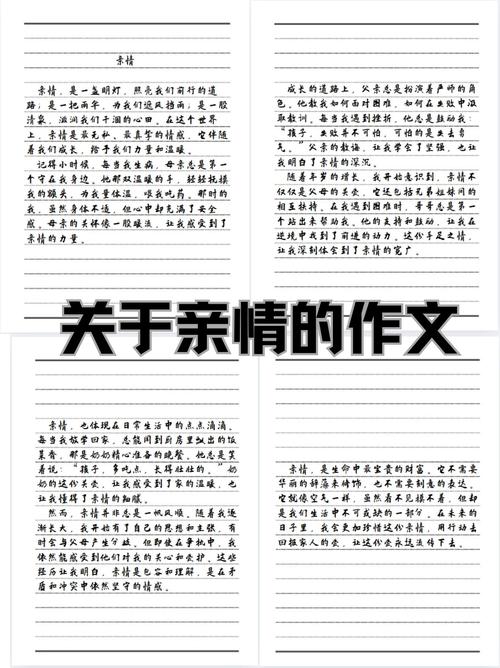 亲情
亲情，是一盏明灯，照亮我们前行的道
路；是一把雨伞，为我们遮风挡雨；是一股
清泉，滋润我们干涸的心田。在这个世界
上，亲情是最无私、最真挚的情感，它伴随
着我们成长，给予我们力量和温暖。
记得小时候，每当我生病，母亲总是第一
个守在我身边。她那双温暖的手，轻轻抚摸
我的额头，为我量体温，喂我吃药。那时的
我，虽然身体不适，但心中却充满了安全
感。母亲的关怀像一股暖流，让我感受到了
亲情的力量。
成长的道路上，父亲总是扮演着严师的角
色。他教我如何面对困难，如何在失败中汲
取教训。每当我遇到挫折，他总是鼓励我：
“孩子，失败并不可怕，可怕的是失去勇
气。”父亲的教诲，让我学会了坚强，也让
我明白了亲情的深沉。
随着年岁的增长，我开始意识到，亲情不
仅仅是父母的关爱，它还包括兄弟姐妹间的
相互扶持。在我遇到困难时，哥哥总是第一
个站出来帮助我。他的支持和鼓励，让我在
逆境中找到了前进的动力。这份手足之情，
让我深刻体会到了亲情的宽广。
关于亲情的作文
亲情，也体现在日常生活中的点点滴滴。
每当我放学回家，总能闻到厨房里飘出的饭
菜香，那是奶奶精心准备的晚餐。她总是笑
着说：“孩子，多吃点，长得壮壮的。”奶
奶的这份关爱，让我感受到了家的温暖，也
让我懂得了亲情的细腻。
然而，亲情并非总是一帆风顺。随着我逐
渐长大，我开始有了自己的思想和主张，有
时会与父母产生分歧。但即使在争执中，我
依然能感受到他们对我的关心和爱护。这些
经历让我明白，亲情是包容和理解，是在矛
盾和冲突中依然坚守的情感。
亲情，是生命中最宝贵的财富。它不需要
华丽的辞藻来修饰，也不需要刻意的表达。
它就像空气一样，虽然看不见摸不着，但却
是我们生活中不可或缺的一部分。在未来的
日子里，我会更加珍惜这份亲情，用行动去
回报家人的爱，让这份爱永远流传下去。